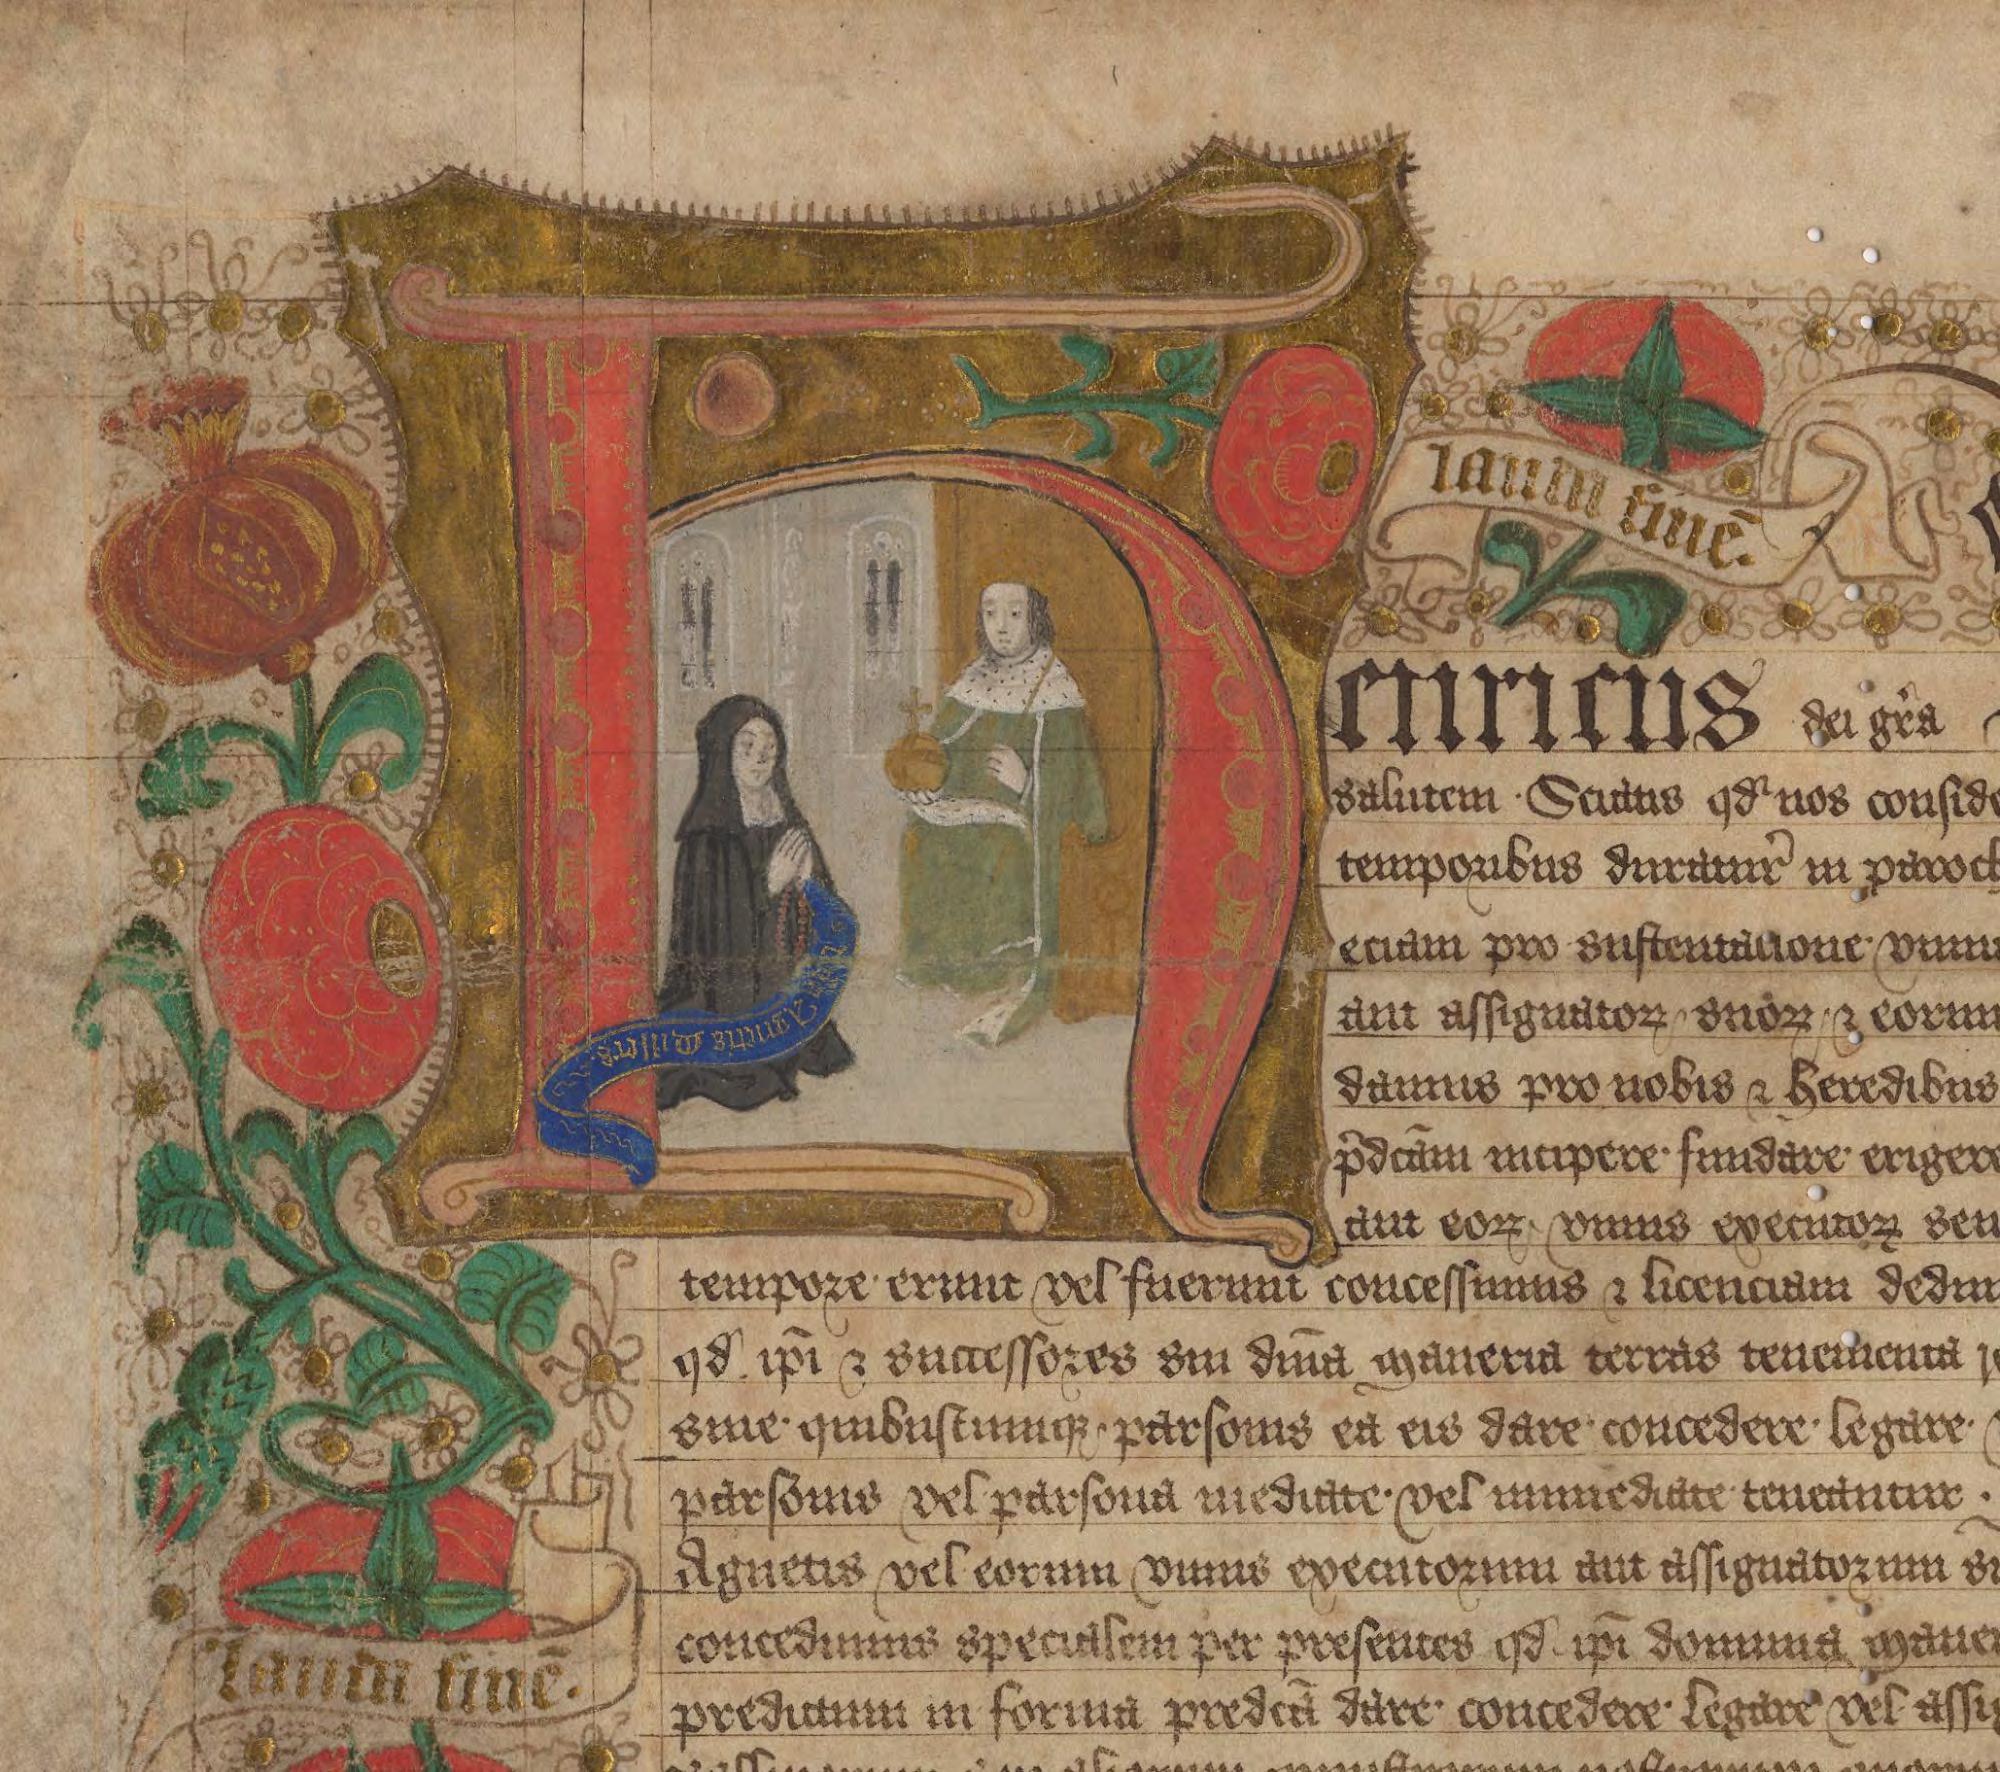 laudā finē.
enricus dei gr̄a
salutem · Sciatis qd nos conside
temporibus duratur̄ in paroch
eciam pro sustentacione unius
aut assignatoꝝ suoꝝ ⁊ eorum
damus pro nobis ⁊ heredibus
p̄dcām incipere fundare erigere
aut eoꝝ unius executoꝝ seu
tempore erunt vel fuerunt concessimus ⁊ licenciam dedim
qd ip̄i ⁊ successores sui dn̄ia maneria terras tenementa
sive quibuscumqꝫ personis ea eis dare concedere legare
personis vel persona mediate vel immediate teneantur .
Agnetis vel eorum unius executorum aut assignatorum
concedimus specialem per presentes qd ip̄i dominia maner
predictum in forma predcā dare concedere legare vel assi
Agnetis
laudā finē.